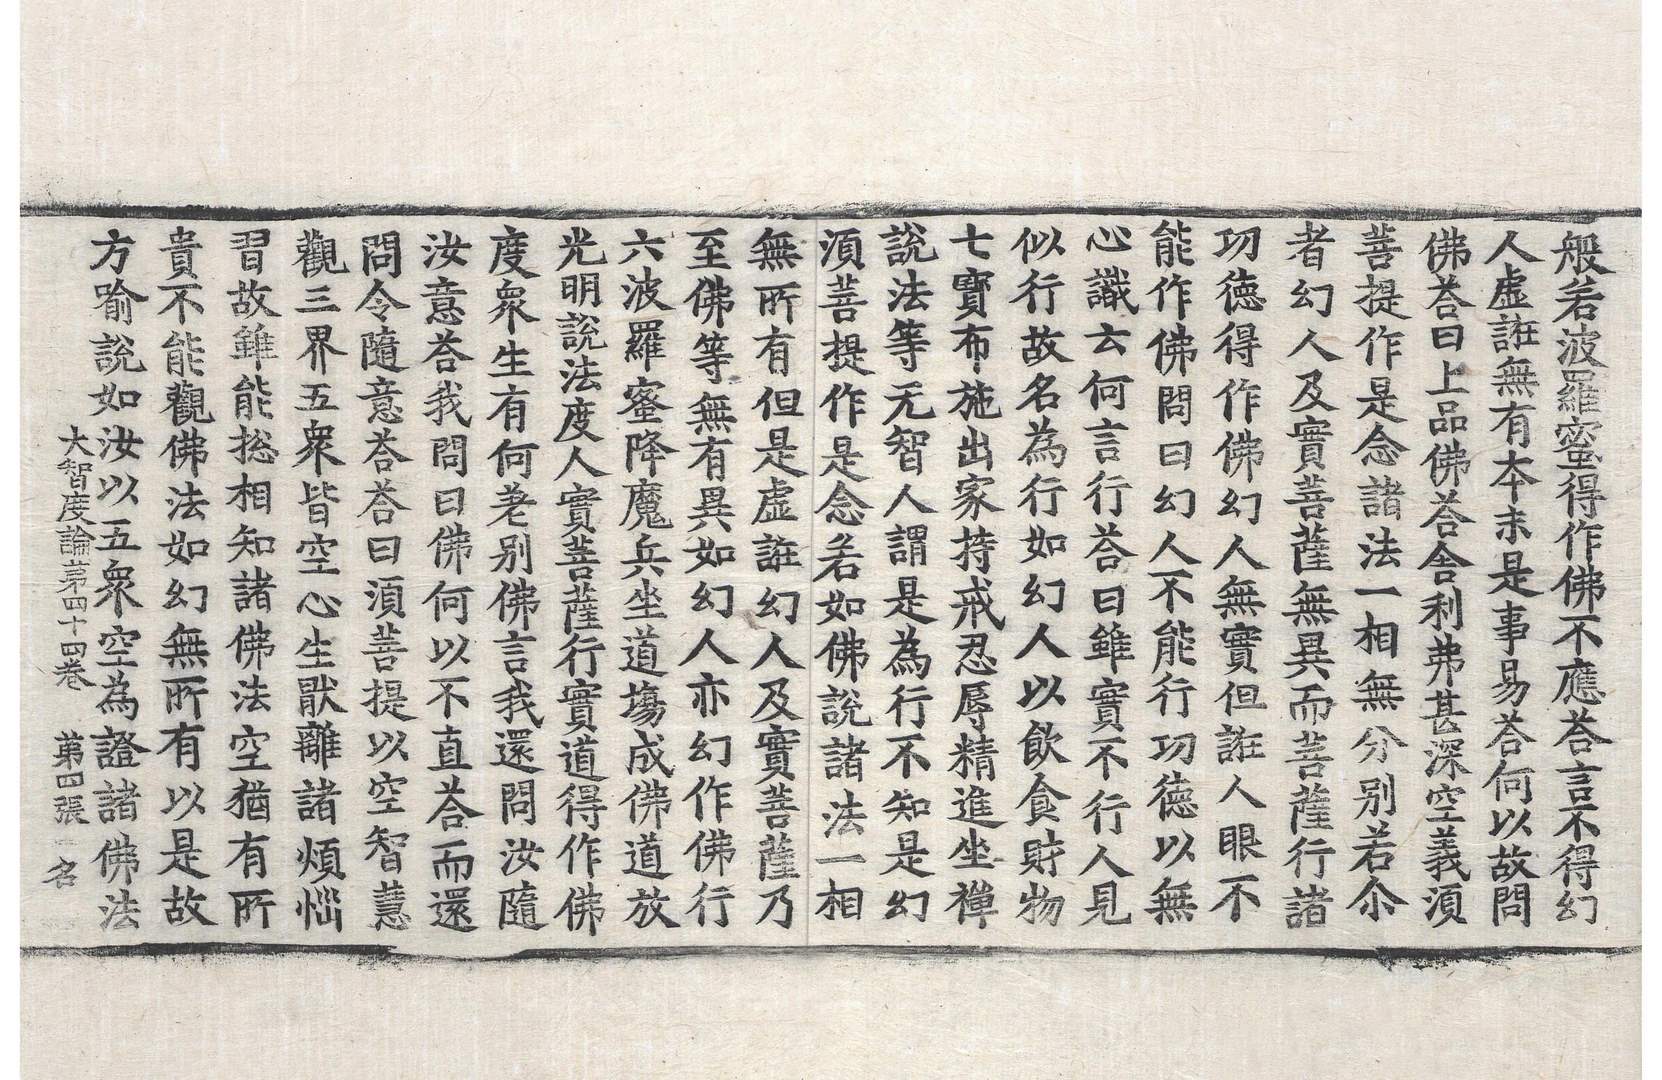 般若波羅蜜得作佛不應荅言不得幻
人虛誑無有本末是事易荅何以故問
佛荅曰上品佛荅舍利弗甚深空義須
菩提作是念諸法一相無分別若尒
者幻人及實菩薩無異而菩薩行諸
功德得作佛幻人無實但誑人眼不
能作佛問曰幻人不能行功德以無
心識云何言行荅曰雖實不行人見
似行故名為行如幻人以飲食財物
七寶布施出家持戒忍辱精進坐禪
說法等无智人謂是為行不知是幻
須菩提作是念若如佛說諸法一相
無所有但是虛誑幻人及實菩薩乃
至佛等無有異如幻人亦幻作佛行
六波羅蜜降魔兵坐道場成佛道放
光明說法度人實菩薩行實道得作佛
度衆生有何差別佛言我還問汝隨
汝意荅我問曰佛何以不直荅而還
問令隨意荅荅曰須菩提以空智慧
觀三界五衆皆空心生猒離諸煩惱
習故雖能惣相知諸佛法空猶有所
貴不能觀佛法如幻無所有以是故
方喻說如汝以五衆空為證諸佛法
大智度論第四十四卷 第四張 名